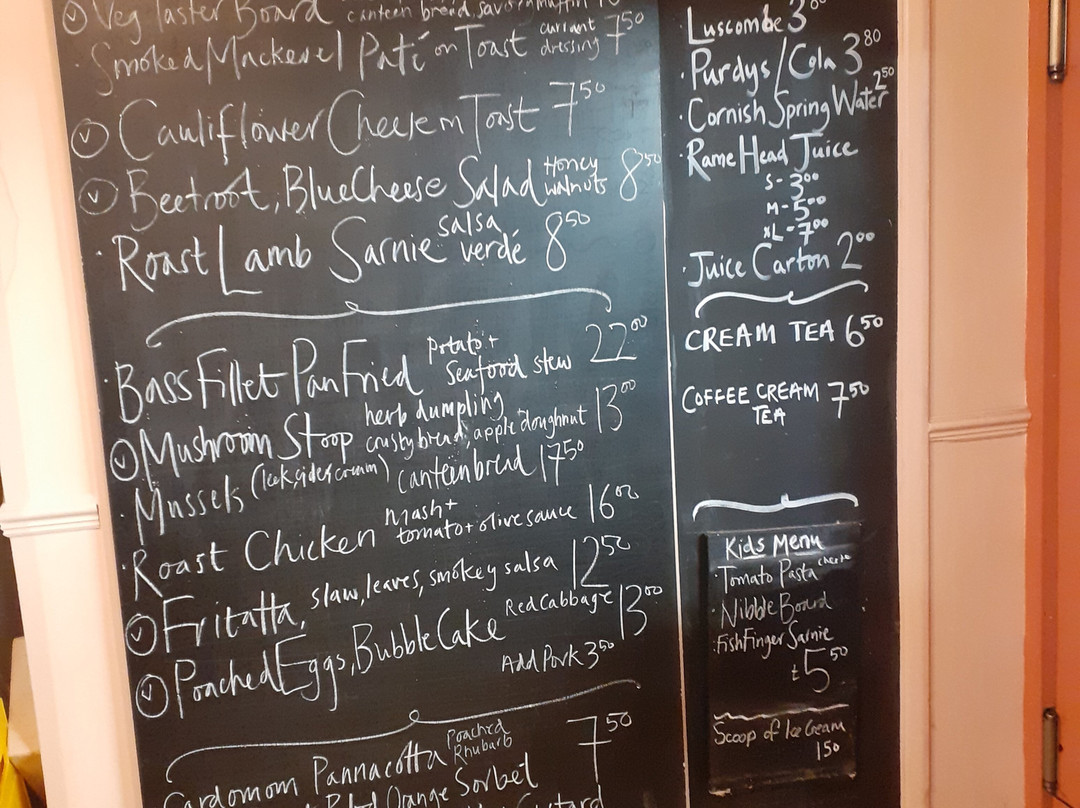 Ⓥ Veg Taster Board canteen bread, savoury muffin
· Smoked Mackerel Paté on Toast currant dressing 7⁵⁰
Ⓥ Cauliflower Cheese on Toast 7⁵⁰
Ⓥ Beetroot, Blue Cheese Salad Honey walnuts 8⁵⁰
· Roast Lamb Sarnie salsa verdé 8⁵⁰
· Bass Fillet Pan Fried Potato + Seafood stew 22⁰⁰
Ⓥ Mushroom Stoop herb dumpling crusty bread, apple doughnut 13⁰⁰
· Mussels (leek, cider, cream) canteen bread 17⁵⁰
· Roast Chicken mash + tomato + olive sauce 16⁰⁰
Ⓥ Fritatta, slaw, leaves, smokey salsa 12⁵⁰
Ⓥ Poached Eggs, Bubble Cake Red Cabbage 13⁰⁰
Add Pork 3⁵⁰
Cardomom Pannacotta Poached Rhubarb 7⁵⁰
Orange Sorbet
Custard
Luscombe 3⁰⁰
· Purdys/Cola 3⁸⁰
· Cornish Spring Water 2⁵⁰
· Rame Head Juice
S - 3⁰⁰
M - 5⁰⁰
XL - 7⁰⁰
· Juice Carton 2⁰⁰
CREAM TEA 6⁵⁰
COFFEE CREAM TEA 7⁵⁰
Kids Menu
· Tomato Pasta cheese
· Nibble Board
· Fish Finger Sarnie
£5⁵⁰
Scoop of Ice Cream
150